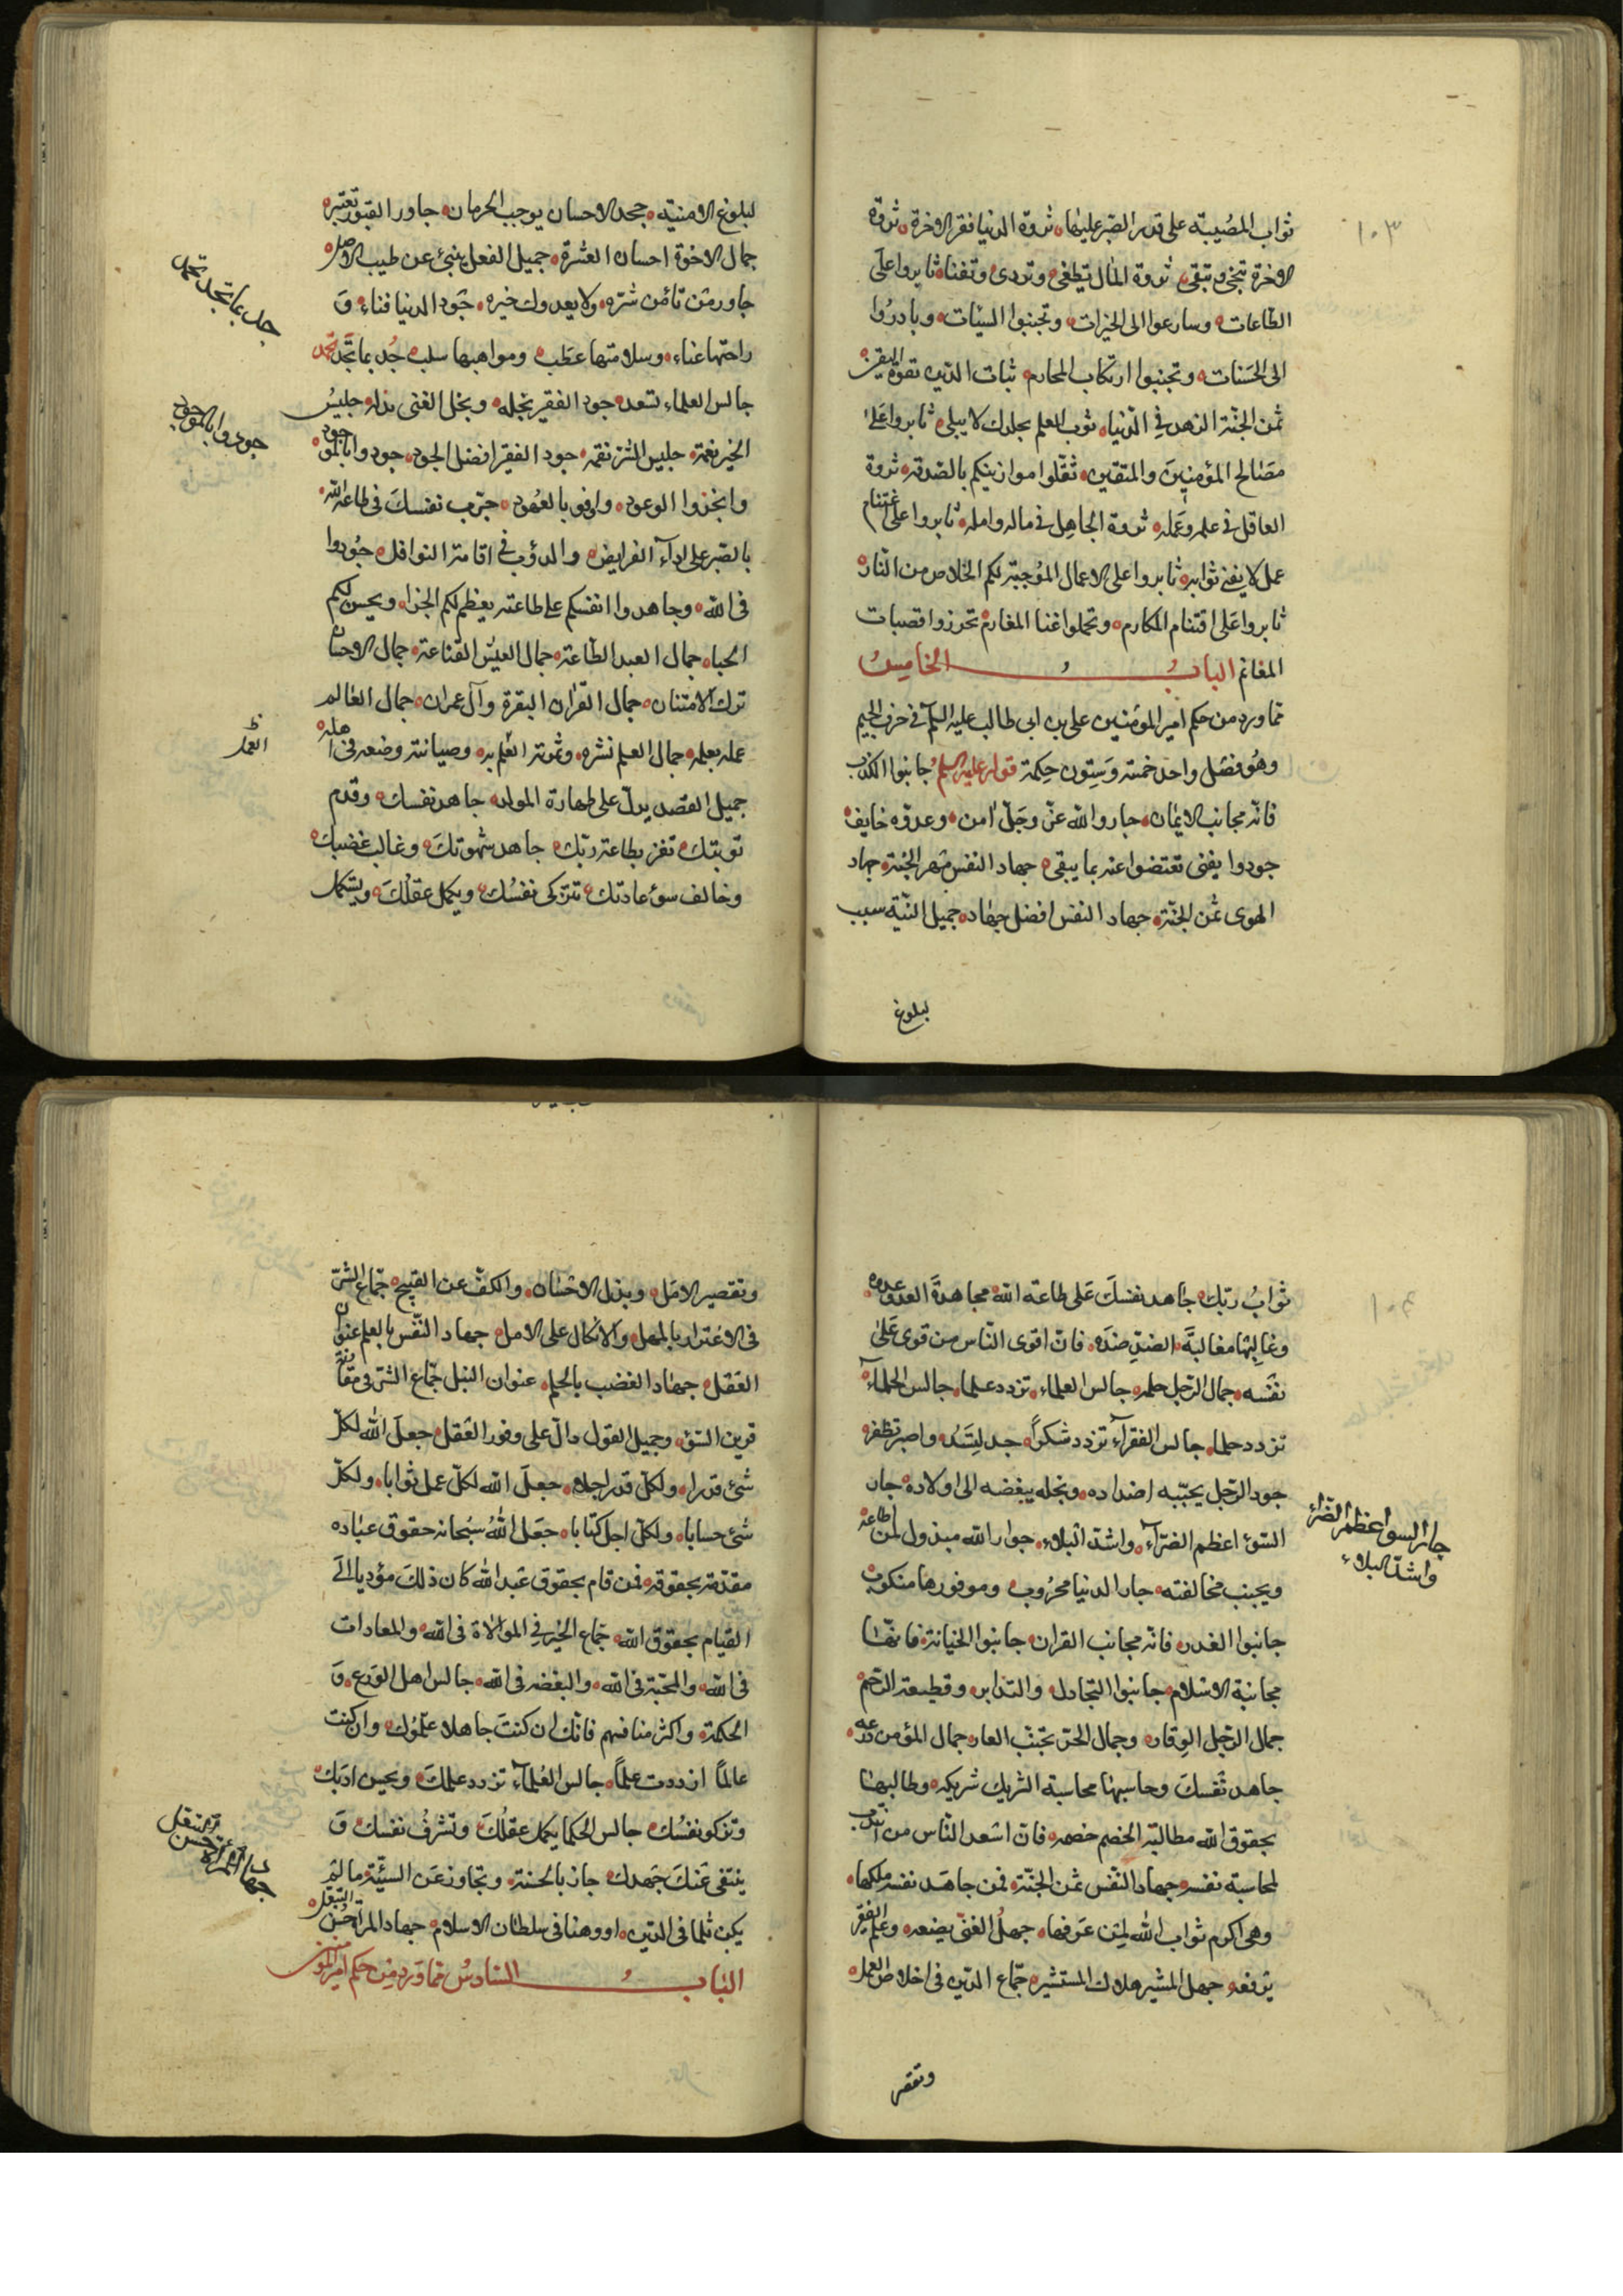 ١٠٣
ثواب المصُيبة على قدر الصّبر عليها ثروة الدنيا فقر الاخرة ثروة
الاخرة تنجى وتبقى ثروة المال تطغى وتردى وتفنا ثابروا على
الطّاعات وسارعوا الى الخيرات وتجنبوا السيّات وبادرُوا
الى الحَسَنات وتجنبوا ارتكاب المحارم ثبات الدّين بقوة اليقين
ثمن الجنّة الزهد فى الدّنيا ثوب العلم يخلدك لا يبلى ثابروا عَلىٰ
مصَالح المؤمنِينَ والمتقين ثقّلوا موازينكم بالصّدقه ثروة
العاقل فى علمه وعَمله ثروة الجاهِل فى ماله وامله ثابروا على اغتنام
عمل لا يفنى ثوابه ثابروا على الاعمال الموُجبة لكم الخلاص من النّار
ثابروا عَلى اقتنام المكارم وتحملوا عنا المغارم تحرزوا قصبات
المغانم البابُ الخامِسُ
ممّا ورد من حكم امير المؤمنين على بن ابى طالب عليه السلم فى حرف الجيم
وهُو فصْل واحد خمسة وَستِون حِكمة قوله عليه السلم جانبوا الكذب
فانّه مجانب الايمان جار والله عزّ وجَلّ امن وعدوّه خايف
جودوا بما يفنى تعتضوا عنه بما يبقى جهاد النفس مهر الجنّة جهاد
الهوى ثمن الجنّة جهاد النفس افضل جهاد جميل النيّة سبب
لبلوغ
لبلوغ الامنية جحد الاحسان يوجب الحرمان جاور القبور تعتبر
جمال الاخوة احسان العشرة جميل الفعل ينبئ عن طيب الاصل
جاور من تامن شرّه ولا يعدوك خيره جَود الدنيا فناء وَ
راحتها عناء وسلامتها عطب ومواهبها سلب جُد بما تجد تحمد
جالس العلماء تسعد جود الفقير يجله وبخل الغنى يذله جليسُ
الخير نعمة جليس الشر نقمة جود الفقير افضل الجود جودوا بالموجود
وانجزوا الوعود واوفوا بالعهُود جرّب نفسكَ فى طاعة الله
بالصّبر على اداء الفرايض والدؤب فى اقامة النوافل جُودوا
فى الله وجاهدوا انفسكم على طاعته يعظم لكم الجزا ويحسن لكم
الحبا جمال العبد الطّاعة جمال العيش القناعة جمال الاحسان
ترك الامتنان جمال القران البقرة وآل عمران جمال العالم
عمله بعلمه جمال العلم نشره وثمرته العمل به وصيانته وضعه فى اهله
جميل القصد يدلّ على طهارة المولد جاهد نفسك وقدّم
توبتك تفز بطاعة ربّك جاهد شهوتكَ وغالب غضبك
وخالف سوء عادتك تتزكى نفسُك ويكمل عقلُكَ ويستكمل
جد بما تجد تحمد
جودوا بالموجود
العمل
ثوابُ ربّك جاهد نفسكَ عَلى طاعة الله مجاهدةَ العدو عدوه
وغالِبها مغالبَة الضدّ ضدّه فانّ اقوى النّاس من قوى عَلىٰ
نفسْه جمال الرّجل حلمه جالس العلماء تزدد علما جالس الحلماء
تزدد حلما جالس الفقراء تزدد شكراً جد لتسُد واصبر تظفر
جود الرّجل يحبّبه اضداده وبخله يبغضه الى اولاده جار
السّوء اعظم الضرّاء واشدّ البلاء جوار الله مبذول لمن اطاعه
ويجنب مخالفته جار الدنيا محرُوب وموفورها منكوب
جانبوا الغدر فانّه مجانب القران جانبوا الخيانة فانّها
مجانبة الاسلام جانبوا التجادل والتدابر وقطيعة الرّحم
جمال الرّجل الوقار وجمال الحرّ تجنّب العار جمال المؤمن ورعه
جاهد نَفسكَ وحاسبهْا محاسبة الشريك شريكه وطالبها
بحقوق الله مطالبة الخصم خصمه فانّ اسعد النّاس من انتدب
لمحاسبة نفسه جهاد النّفس ثمن الجنّة فمن جاهَد نفسه ملكها
وهى اكرم ثواب الله لمن عَرفها جهلُ الغنىّ يضعه وعلم الفقير
يرفعه جهل المشير هلاك المستشير جمّاع الدّين فى اخلاص العمل
جار السوء اعظم الضراء
واشدّ البلاء
وتقصر
وتقصير الامَل وبذل الاحسَان والكفّ عن القبيح جمّاع الشرّ
فى الاغترار بالمهل والاتكال على الامل جهاد النّفس بالعلم عنوان
العَقل جهاد الغضب بالحلم عنوان النبل جمّاع الشر فى مقارنة
قرين السّوء وجميل القول دالّ على وفور العَقل جعلَ الله لكلّ
شئ قدرا ولكلّ قدر اجلا جعلَ الله لكلّ عمل ثوابا ولكلّ
شئ حسابا ولكلّ اجل كتابا جعَل اللهُ سبُحانه حقوق عبَاده
مقدّمة بحقوقه فمن قام بحقوق عَبد الله كان ذلكَ مؤديا الى
القيام بحقوق الله جمّاع الخير فى الموالاة فى الله والمعادات
فى الله والمحبّة فى الله والبغضه فى الله جالس اهل الوَرع وَ
الحكمة واكثر منافسهم فانّك ان كنتَ جاهلا علّموُك وان كنت
عالماً ازددت علماً جالس العُلماء تزدد علمكَ ويحسن ادبَك
وتزكو نفسُك جالس الحكما يكمل عقلُكَ وتشرفُ نفسك وَ
ينتفى عَنكَ جَهلك جاز بالحسنة وتجاوز عَن السيّئة ما لم
يكن ثلما فى الدّين او وهنا فى سلطان الاسلام جهاد المراة حُسن التبعل
البَاب السّادسُ فمّا وَرد مِن حكم امير المؤمنين
جهاد المراة حسن التبعل